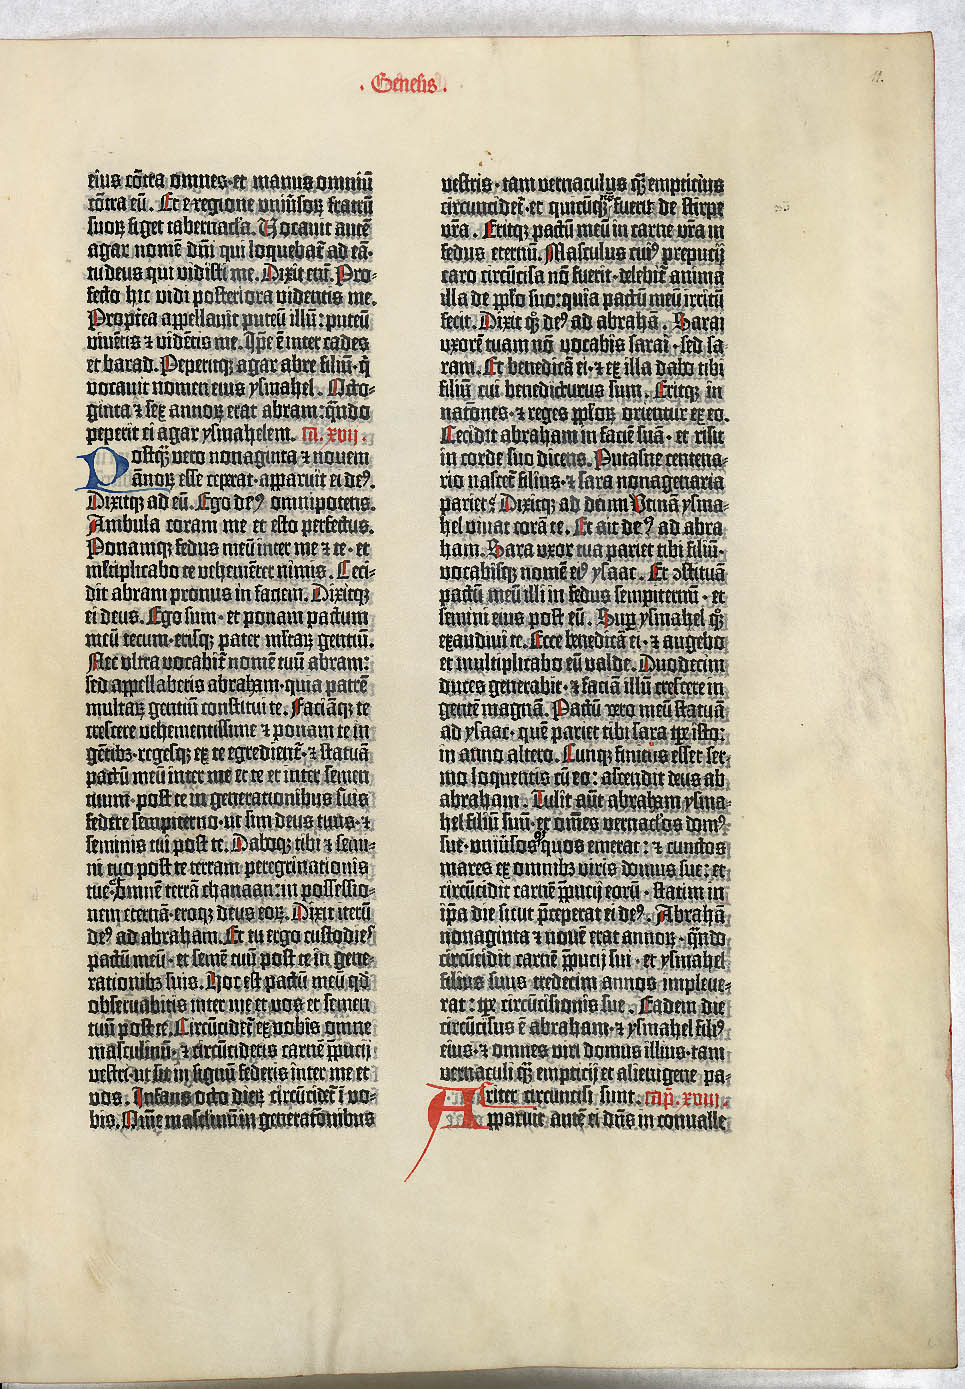 · Genesis ·
11.
eius cõtra omnes · et manus omniũ
cõtra eũ . Et e regione vniũsoꝝ fratrũ
suoꝝ figet tabernacła . Vocauit autẽ
agar nomẽ dñi qui loquebaĩ ad eã ·
tu deus qui vidisti me . Dixit em̃ . Pro-
fecto hic vidi posteriora videntis me .
Propterea appellauit puteũ illũ : puteũ
viuẽtis ⁊ vidẽtis me . Ip̃e ẽ inter cades
et barad . Peperitqꝫ agar abre filiũ · q̃
vocauit nomen eius ysmahel . Octo-
ginta ⁊ sex annoꝝ erat abram : qñdo
peperit ei agar ysmahelem . ca̅ . xvij .
Postq̃ꝫ vero nonaginta ⁊ nouem
ãnoꝝ esse ceperat · apparuit ei deꝰ .
Dixitqꝫ ad eũ . Ego deꝰ omnipotens .
Ambula coram me et esto perfectus .
Ponamqꝫ fedus meũ inter me ⁊ te · et
mltiplicabo te vehemẽter nimis . Ceci-
dit abram pronus in faciem . Dixitqꝫ
ei deus . Ego sum · et ponam pactum
meũ tecum · erisqꝫ pater mltaꝝ gentiũ .
Nec vltra vocabiĩ nomẽ tuũ abram :
sed appellaberis abraham · quia patrẽ
multaꝝ gentiũ constitui te . Faciãqꝫ te
crescere vehementissime ⁊ ponam te in
gẽtibꝫ · regesqꝫ ex te egredienĩ · ⁊ statuã
pactũ meũ inter me et te et inter semen
tuum · post te in generationibus suis
federe sempiterno · ut sim deus tuus · ⁊
seminis tui post te . Daboqꝫ tibi ⁊ semi-
ni tuo post te terram peregrinationis
tue · Omnẽ terrã chanaan : in possessio-
nem eternã · eroqꝫ deus eoꝝ . Dixit iterũ
deꝰ ad abraham . Et tu ergo custodieˢ
pactũ meũ · et semẽ tuũ post te in gene-
rationibꝫ suis . Hoc est pactũ meũ qd̃
obseruabitis inter me et vos et semen
tuũ post te . Circũcideĩ ex vobis omne
masculinũ · ⁊ circũcidetis carnẽ p̃pucij
vestri · ut sit in signũ federis inter me et
vos . Infans octo dieꝝ circũcideĩ ĩ vo-
bis . Om̃e masclinũ in generatõnibus
vestris · tam vernaculus qꝫ̃ empticius
circuncideĩ · et quicũqꝫ̃ fuerit de stirpe
vr̃a . Eritqꝫ pactũ meũ in carne vr̃a in
fedus eternũ . Masculus cuiꝰ preputij
caro circũcisa nõ fuerit · delebiĩ anima
illa de pp̃lo suo : quia pactũ meũ irritũ
fecit . Dixit qꝫ̃ deꝰ ad abrahã . Sarai
vxorẽ tuam nõ vocabis sarai · sed sa-
ram . Et benedicã ei · ⁊ ex illa dabo tibi
filiũ cui benedicturus sum . Eritqꝫ in
natõnes · ⁊ reges pp̃loꝝ orientur ex eo .
Cecidit abraham in faciẽ suã · et risit
in corde suo dicens . Putasne centena-
rio nasceĩ filius · ⁊ sara nonagenaria
pariet ? Dixitqꝫ ad deum Vtinã ysma-
hel viuat corã te . Et ait deꝰ ad abra
ham . Sara vxor tua pariet tibi filiũ ·
vocabisqꝫ nomẽ eiꝰ ysaac . Et ꝯstituã
pactũ meũ illi in fedus sempiternũ · et
semini eius post eũ . Sup̱ ysmahel qꝫ̃
exaudiui te . Ecce benedicã ei · ⁊ augebo
et multiplicabo eũ valde . Duodecim
duces generabit · ⁊ faciã illũ crescere in
gentẽ magnã . Pactũ vero meũ statuã
ad ysaac · quẽ pariet tibi sara tp̱e isto :
in anno altero . Cunqꝫ finitus esset ser-
mo loquentis cũ eo : ascendit deus ab
abraham . Tulit aũt abraham ysma-
hel filiũ suũ · et om̃es vernacłos domꝰ
sue · vniũsosqꝫ quos emerat : ⁊ cunctos
mares ex omnibꝫ viris domus sue : et
circũcidit carnẽ p̃pucij eorũ · statim in
ip̃a die sicut p̃ceperat ei deꝰ . Abrahã
nonaginta ⁊ nouẽ erat annoꝝ · qñdo
circũcidit carnẽ p̃pucij sui · et ysmahel
filius suus tredecim annos impleue-
rat : tp̱e circũcisionis sue . Eadem die
circũcisus ẽ abraham · ⁊ ysmahel filiꝰ
eius · ⁊ omnes viri domus illius · tam
vernaculi qꝫ̃ empticij et alienigene pa-
riter circũcisi sunt . cap̃ . xviij .
Apparuit autẽ ei dñs in conualle